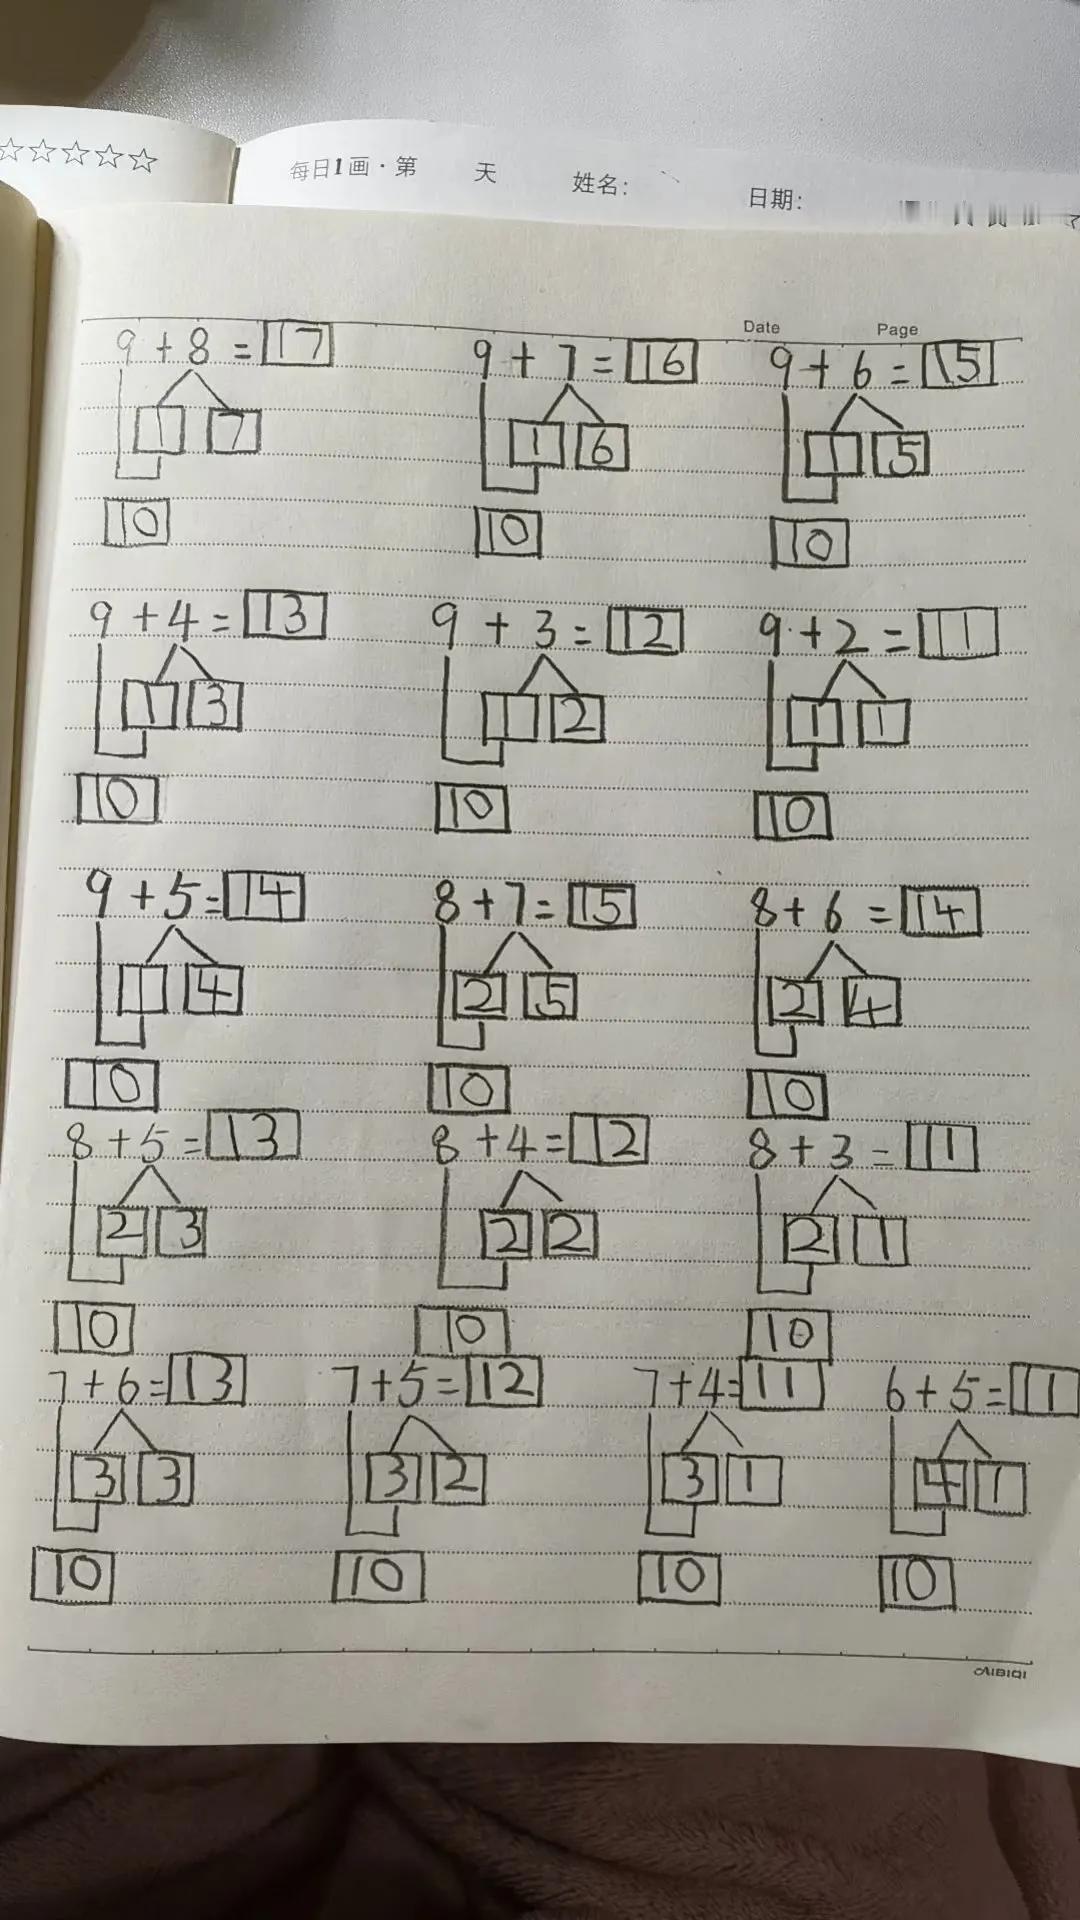 每日1画·第 天 姓名: 日期:
Date Page
9 + 8 = 17 9 + 7 = 16 9 + 6 = 15
1 7 1 6 1 5
10 10 10
9 + 4 = 13 9 + 3 = 12 9 + 2 = 11
1 3 1 2 1 1
10 10 10
9 + 5 = 14 8 + 7 = 15 8 + 6 = 14
1 4 2 5 2 4
10 10 10
8 + 5 = 13 8 + 4 = 12 8 + 3 = 11
2 3 2 2 2 1
10 10 10
7 + 6 = 13 7 + 5 = 12 7 + 4 = 11 6 + 5 = 11
3 3 3 2 3 1 4 1
10 10 10 10
AIBIQI